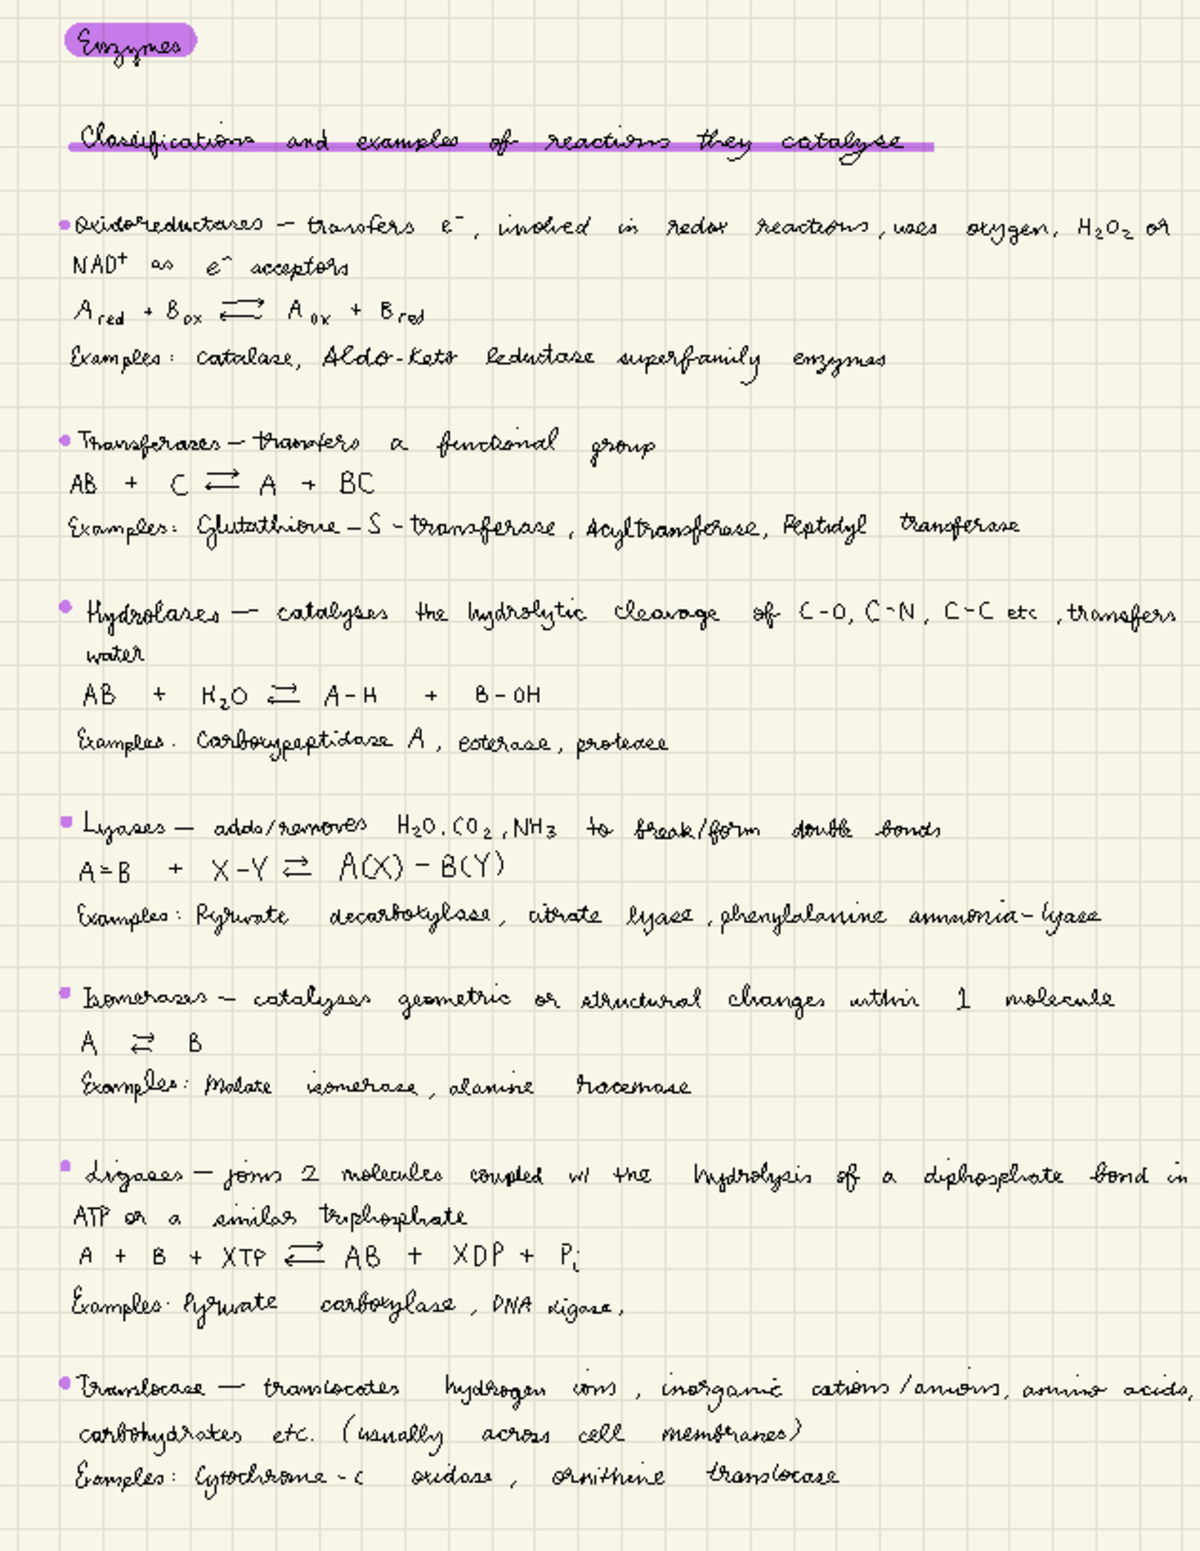 Enzymes
Classifications and examples of reactions they catalyse
• Oxidoreductases – transfers e⁻, involved in redox reactions, uses oxygen, H₂O₂ or
NAD⁺ as e⁻ acceptors
A red + B ox ⇌ A ox + B red
Examples: catalase, Aldo-Keto Reductase superfamily enzymes
• Transferases – transfers a functional group
AB + C ⇌ A + BC
Examples: Glutathione-S-transferase, Acyltransferase, Peptidyl transferase
• Hydrolases – catalyses the hydrolytic cleavage of C-O, C-N, C-C etc, transfers
water
AB + H₂O ⇌ A-H + B-OH
Examples. Carboxypeptidase A, esterase, protease
• Lyases – adds/removes H₂O, CO₂, NH₃ to break/form double bonds
A=B + X-Y ⇌ A(X) - B(Y)
Examples: Pyruvate decarboxylase, citrate lyase, phenylalanine ammonia-lyase
• Isomerases – catalyses geometric or structural changes within 1 molecule
A ⇌ B
Examples: Malate isomerase, alanine racemase
• Ligases – joins 2 molecules coupled w/ the hydrolysis of a diphosphate bond in
ATP or a similar triphosphate
A + B + XTP ⇌ AB + XDP + Pi
Examples: Pyruvate carboxylase, DNA ligase,
• Translocase – translocates hydrogen ions, inorganic cations/anions, amino acids,
carbohydrates etc. (usually across cell membranes)
Examples: Cytochrome-c oxidase, ornithine translocase